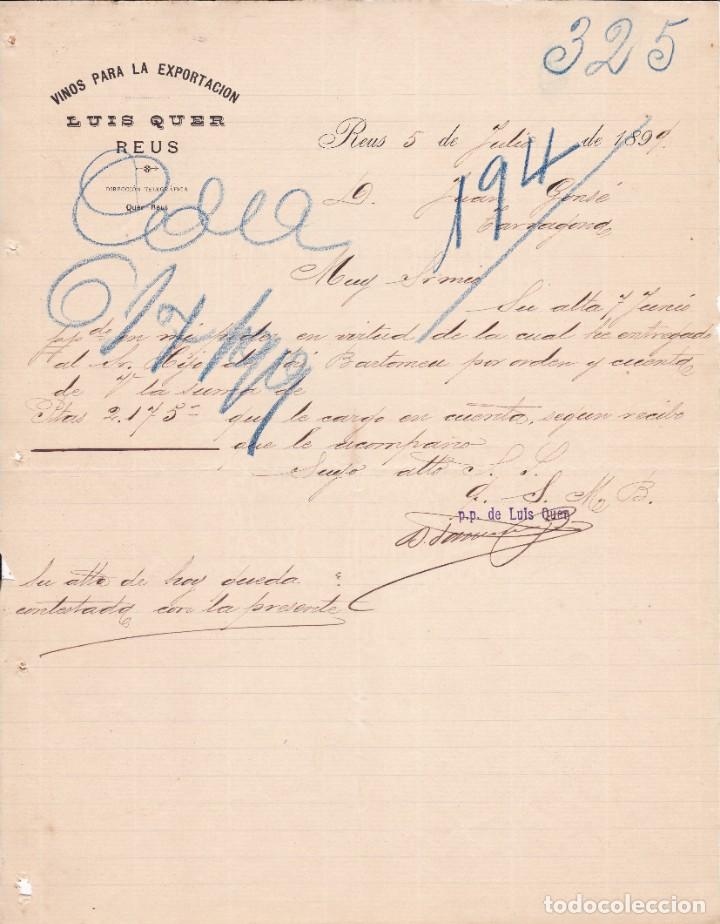 325
VINOS PARA LA EXPORTACION
LUIS QUER
REUS
DIRECCIÓN TELEGRÁFICA
Quer Reus
Reus 5 de Julio de 1899.
D. Juan
Tarragona
194
Muy Sr mio
Su atta 7 Junio
pp.do en mi poder, en virtud de la cual he entregado
al Sr. Hijo de José Bartomeu por orden y cuenta
de V la suma de
Ptas 2.175 = que le cargo en cuenta, segun recibo
que le acompaño
Suyo atto S. S.
q. S. M. B.
p.p. de Luis Quer
Su atta de hoy queda
contestada con la presente
todocoleccion